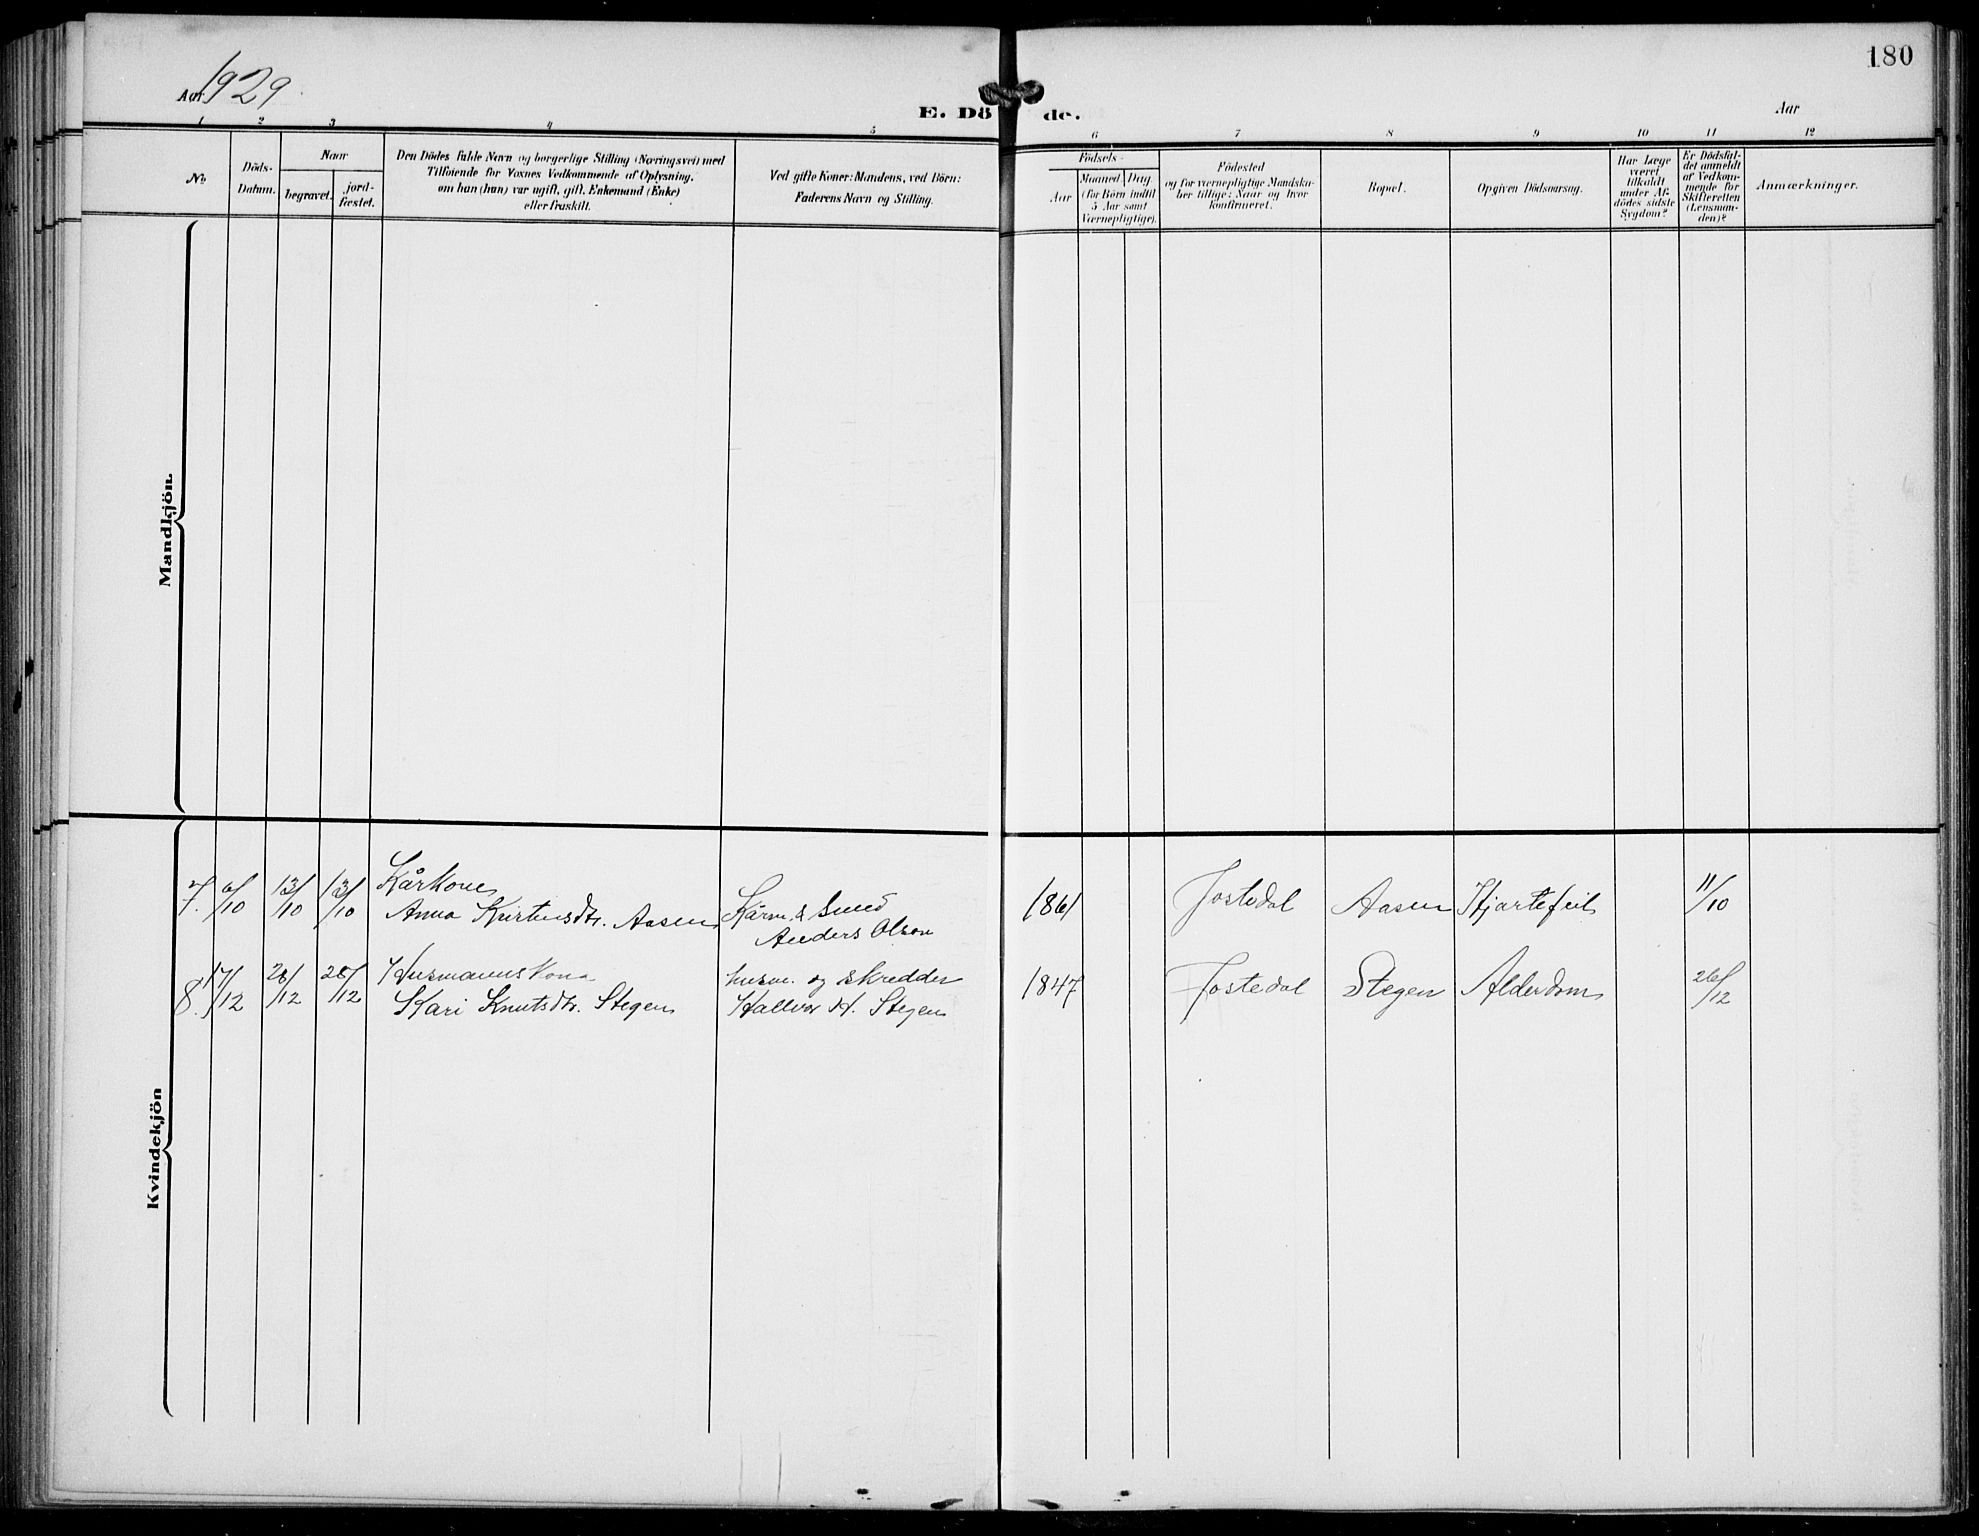 180
Aar 1929
E. Dö de.
Aar
1 2 3 4 5 6 7 8 9 10 11 12
No.
Döds-
Datum.
Naar
begravet.
jord-
fæstet.
Den Dödes fulde Navn og borgerlige Stilling (Næringsvei) med
Tilföiende for Voxnes Vedkommende af Oplysning,
om han (hun) var ugift, gift, Enkemand (Enke)
eller fraskilt.
Ved gifte Koner: Mandens, ved Börn:
Faderens Navn og Stilling.
Födsels-
Aar
Maaned
Dag
(for Börn indtil
5 Aar samt
Værnepligtige).
Födested
og for værnepligtige Mandska-
ber tillige: Naar og hvor
konfirmeret.
Bopæl.
Opgiven Dödsaarsag.
Har Læge
været
tilkaldt
under Af-
dödes sidste
Sygdom?
Er Dödsfal-
det anmeldt
af Vedkom-
mende for
Skifteretten
(Lensman-
den)?
Anmærkninger.
Mandkjön.
Kvindekjön
7. 6/10 13/10 13/10 Kårkone
Anna Kristensdtr. Aasen
Kårm. & Smed
Anders Olsen
1861 Jostedal Aasen Hjartefeil 11/10
8. 17/12 28/12 28/12 Husmannskona
Kari Knutsdtr. Stegen
husm. og skredder
Hallvor H. Stegen
1847 Jostedal Stegen Alderdom 26/12